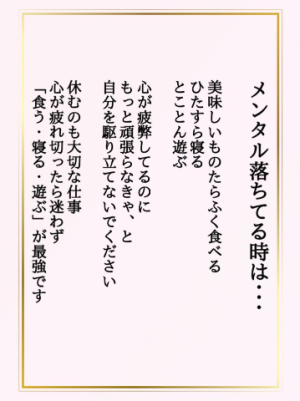 メンタル落ちてる時は・・・
美味しいものたらふく食べる
ひたすら寝る
とことん遊ぶ
心が疲弊してるのに
もっと頑張らなきゃ、と
自分を駆り立てないでください
休むのも大切な仕事
心が疲れ切ったら迷わず
「食う・寝る・遊ぶ」が最強です